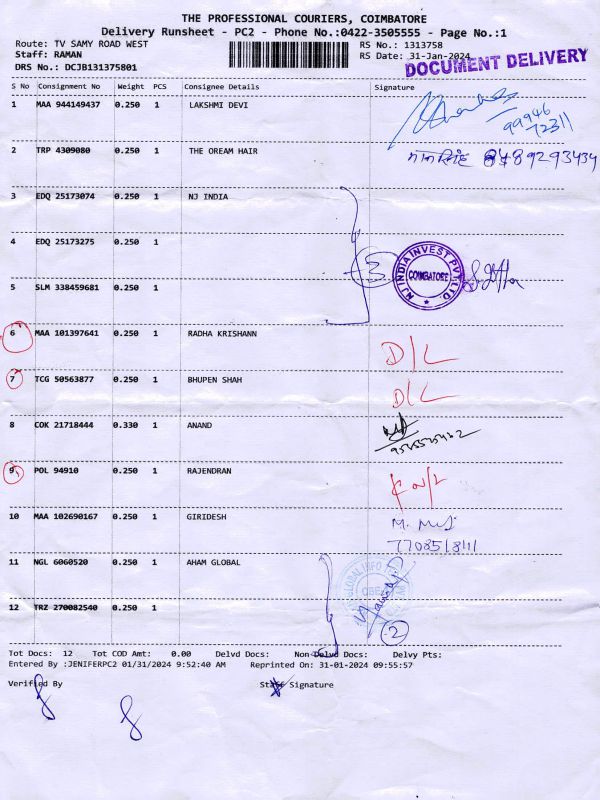 THE PROFESSIONAL COURIERS, COIMBATORE
Delivery Runsheet - PC2 - Phone No.:0422-3505555 - Page No.:1
Route: TV SAMY ROAD WEST RS No.: 1313758
Staff: RAMAN RS Date: 31-Jan-2024
DRS No.: DCJB131375801 DOCUMENT DELIVERY
S No Consignment No Weight PCS Consignee Details Signature
1 MAA 944149437 0.250 1 LAKSHMI DEVI
99946
72311
2 TRP 4309080 0.250 1 THE OREAM HAIR
3 EDQ 25173074 0.250 1 NJ INDIA
4 EDQ 25173275 0.250 1
3 NJ INDIA INVEST PVT LTD. COIMBATORE
5 SLM 338459681 0.250 1
6 MAA 101397641 0.250 1 RADHA KRISHANN
D/L
7 TCG 50563877 0.250 1 BHUPEN SHAH
D/L
8 COK 21718444 0.330 1 ANAND
9 POL 94910 0.250 1 RAJENDRAN
10 MAA 102690167 0.250 1 GIRIDESH
11 NGL 6060520 0.250 1 AHAM GLOBAL
GLOBAL INFO
12 TRZ 270082540 0.250 1
2
Tot Docs: 12 Tot COD Amt: 0.00 Delvd Docs: Non-Delvd Docs: Delvy Pts:
Entered By :JENIFERPC2 01/31/2024 9:52:40 AM Reprinted On: 31-01-2024 09:55:57
Verified By Staff Signature